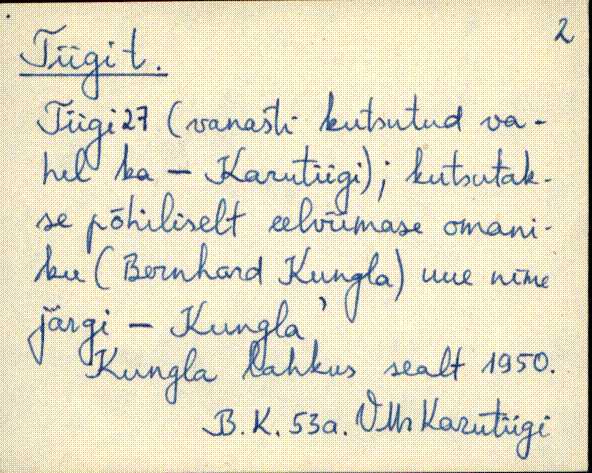 2
Tiigi t.
Tiigi 27 (vanasti kutsutud va-
hel ka - Karutiigi); kutsutak-
se põhiliselt eelviimase omani-
ku (Bernhard Kungla) uue nime
järgi - Kungla'
Kungla lahkus sealt 1950.
B.K. 53a. Karutiigi